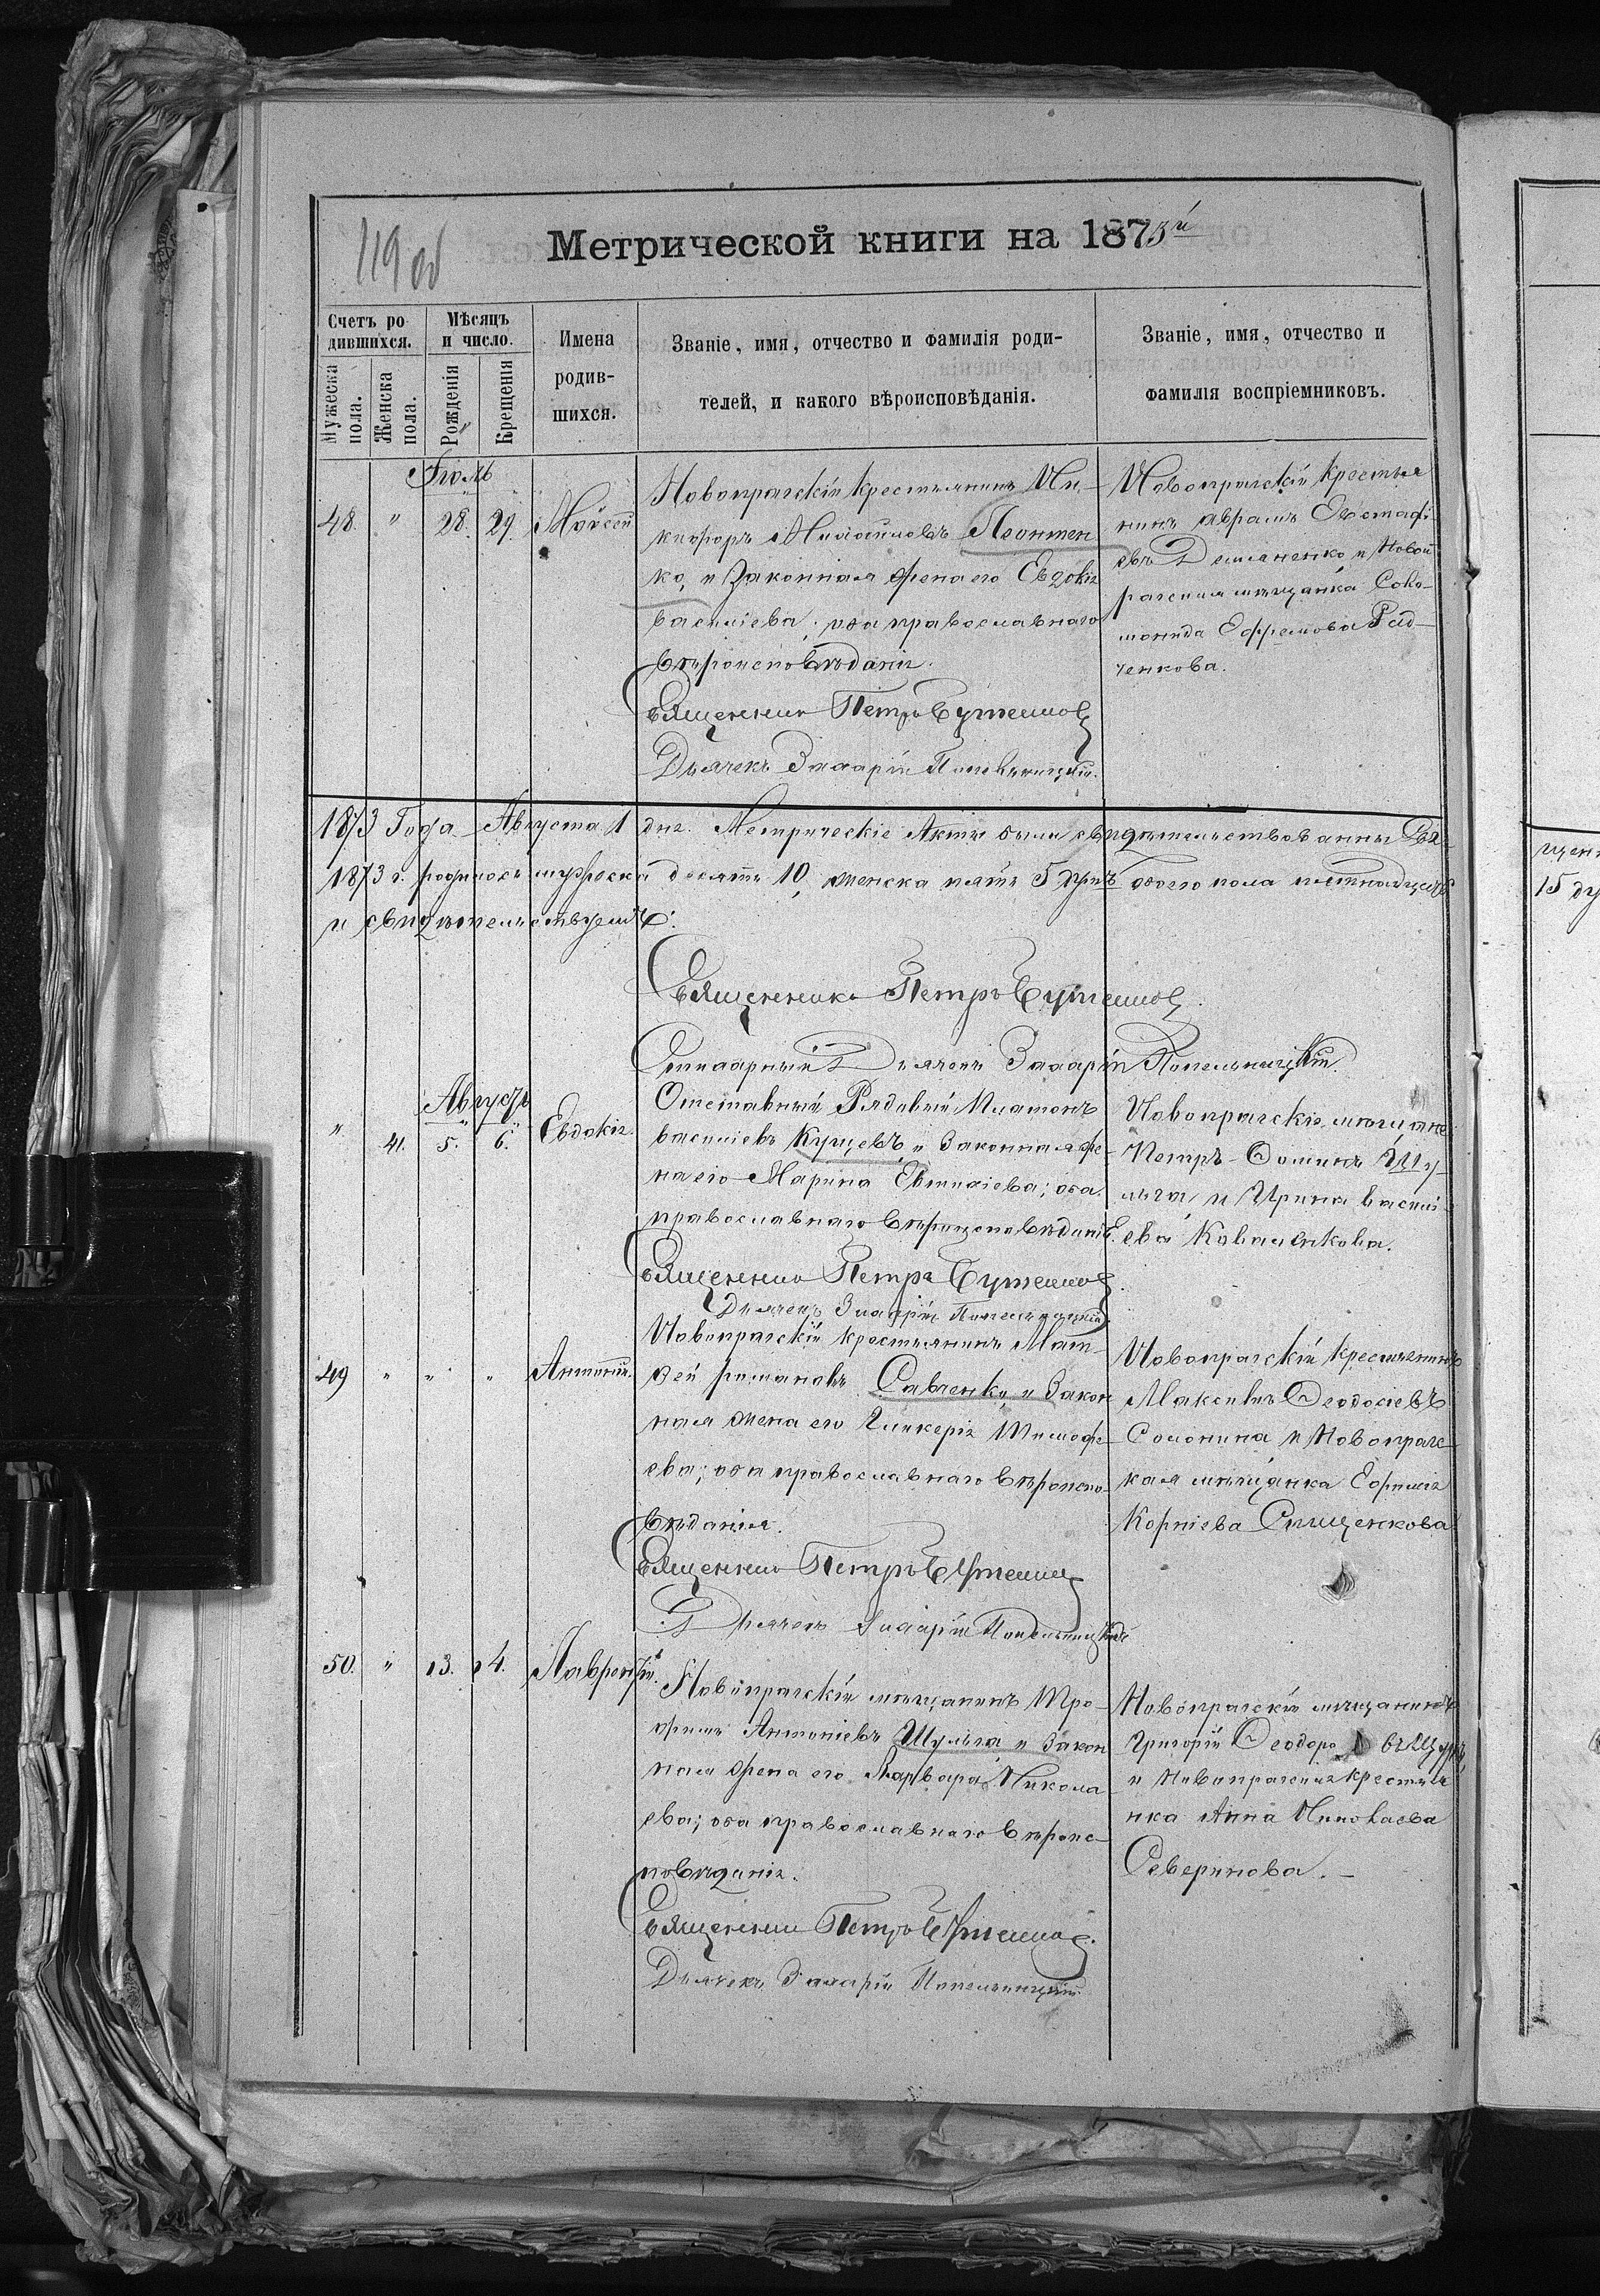 119 об
Метрической книги на 1873й
Счетъ ро
дившихся.
Мѣсяцъ
и число.
Мужеска пола.
Женска пола.
Рожденія
Крещенія
Имена
родив-
шихся.
Званіе, имя, отчество и фамилія роди-
телей, и какого вѣроисповѣданія.
Званіе, имя, отчество и
фамилія воспріемниковъ.
Іюль
48. " 28. 29. Моѵсей
Новопражскій крестьянинъ Ни-
кифоръ Михаиловъ Леонтен
ко, и законная жена его Евдокія
Василіева; оба православнаго
вѣроисповѣданія.
Священникъ Петръ
Дьячекъ Захарій Попельницкій.
Новопражскій крестья
нинъ Аврамъ Евстафі
евъ Демяненко и Новоп
ражская мѣщанка Соло-
монида Ефремова Рад-
ченкова.
1873 Года Августа 1 дня. Метрическіе Акты были свидѣтельствованны
1873 г. родилось мужеска десять 10, женска пять 5 душъ обоего пола
и свидѣтельствуемъ:
Священникъ Петръ
Дьячекъ Захарій Попельницкій.
Августъ
" 41. 5. 6. Евдокія
Отставный Рядовый Платонъ
Василіевъ Купцевъ, и законная же-
на его Марина Евтихіева; оба
православнаго вѣроисповѣданія.
Священникъ Петръ
Дьячекъ Захарій Попельницкій
Новопражскіе мѣщане
Петръ Фоминъ Шу-
льга, и Ирина Василі-
ева Коваленкова.
49 " " " Антоній.
Новопражскій крестьянинъ Мат-
вей Романовъ Савченко, и закон
ная жена его Гликерія Тимофе-
ева; оба православнаго вѣроиспо-
вѣданія.
Священникъ Петръ
Дьячекъ Захарій Попельницкій
Новопражскій крестьянинъ
Максимъ Феодосіевъ
Соломина и Новопражс-
кая мѣщанка Ефимія
Корніева Сищенкова
50. " 13. 14. Лаврентій.
Новопражскій мѣщанинъ Тро-
фимъ Антоніевъ Шульга и закон
ная жена его Варвара Никола
ева; оба православнаго вѣроис-
повѣданія.
Священникъ Петръ
Дьячекъ Захарій Попельницкій.
Новопражскій мѣщанинъ
Григорій Феодоровъ
и Новопражская крестья
нка Анна Николаева
Северинова.
щен
15 ду